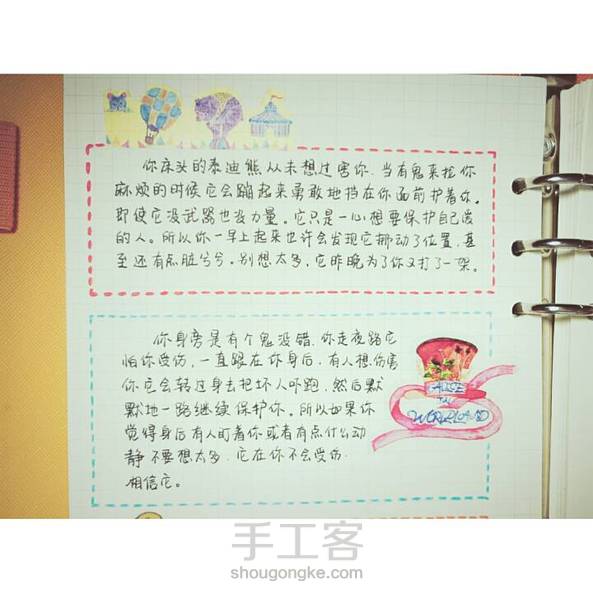 你床头的泰迪熊从未想过害你.当有鬼来找你
麻烦的时候它会蹦起来勇敢地挡在你面前护着你。
即使它没武器也没力量。它只是一心想要保护自己爱
的人。所以你一早上起来也许会发现它挪动了位置,甚
至还有点脏兮兮。别想太多,它昨晚为了你又打了一架。
你身旁是有个鬼没错.你走夜路它
怕你受伤,一直跟在你身后.有人想伤害
你它会转过身去把坏人吓跑.然后默
默地一路继续保护你。所以如果你
觉得身后有人盯着你或者有点什么动
静 不要想太多.它在你不会受伤.
相信它。
ALICE
WONDERLAND
手工客
shougongke.com